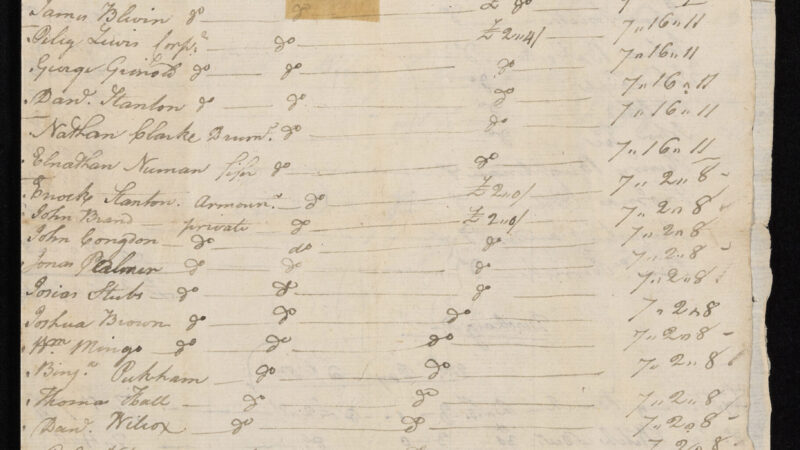 James Blivin do do £ do 7
Peleg Lewis Corpr. do £2"4/ 7"16"11
George Grinold do do do 7"16"11
Danl. Stanton do do do 7"16"11
Nathan Clarke Drumr. do do 7"16"11
Elnathan Numan fifer do do 7"16"11
Enock Stanton Armourr. do £2"0/ 7"2"8
John Brand private do £2"0/ 7"2"8
John Congdon do do do 7"2"8
Jonas Palmer do do do 7"2"8
Josias Stubs do do do 7"2"8
Joshua Brown do do do 7"2"8
Wm Mingo do do do 7"2"8
Binja. Peckham do do 7"2"8
Thomas Hall do do 7"2"8
Danl. Wilcox do do 7"2"8
7"2"8